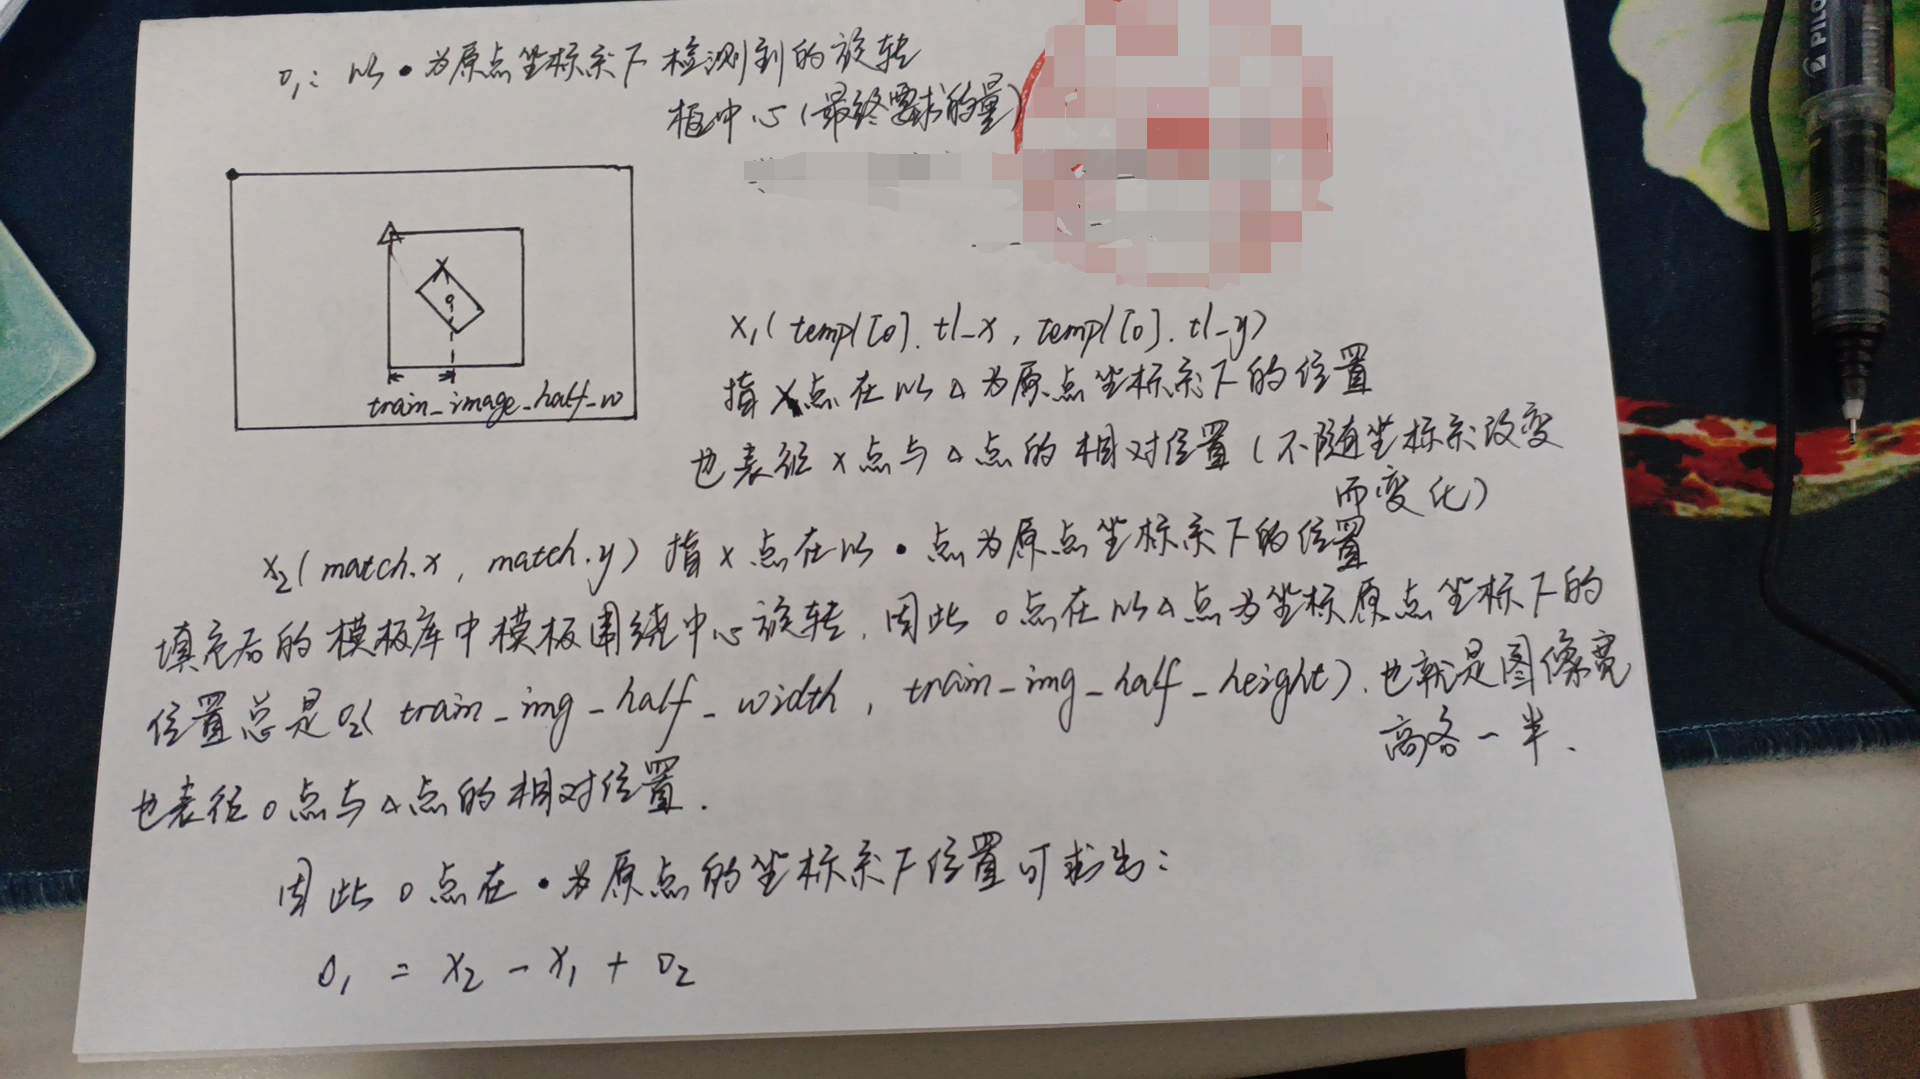 O₁: 以•为原点坐标系下检测到的旋转
框中心(最终要求的量)
train_image_half_w
X₁(templ[0].tl_x, templ[0].tl_y)
指X点在以△为原点坐标系下的位置
也表征X点与△点的相对位置(不随坐标系改变
而变化)
X₂(match.x, match.y) 指X点在以•点为原点坐标系下的位置
填充后的模板库中模板围绕中心旋转,因此O点在以△点为坐标原点坐标下的
位置总是O₂(train_img_half_width, train_img_half_height).也就是图像宽
高各一半.
也表征O点与△点的相对位置.
因此O点在•为原点的坐标系下位置可求出:
O₁ = X₂ - X₁ + O₂
PILO